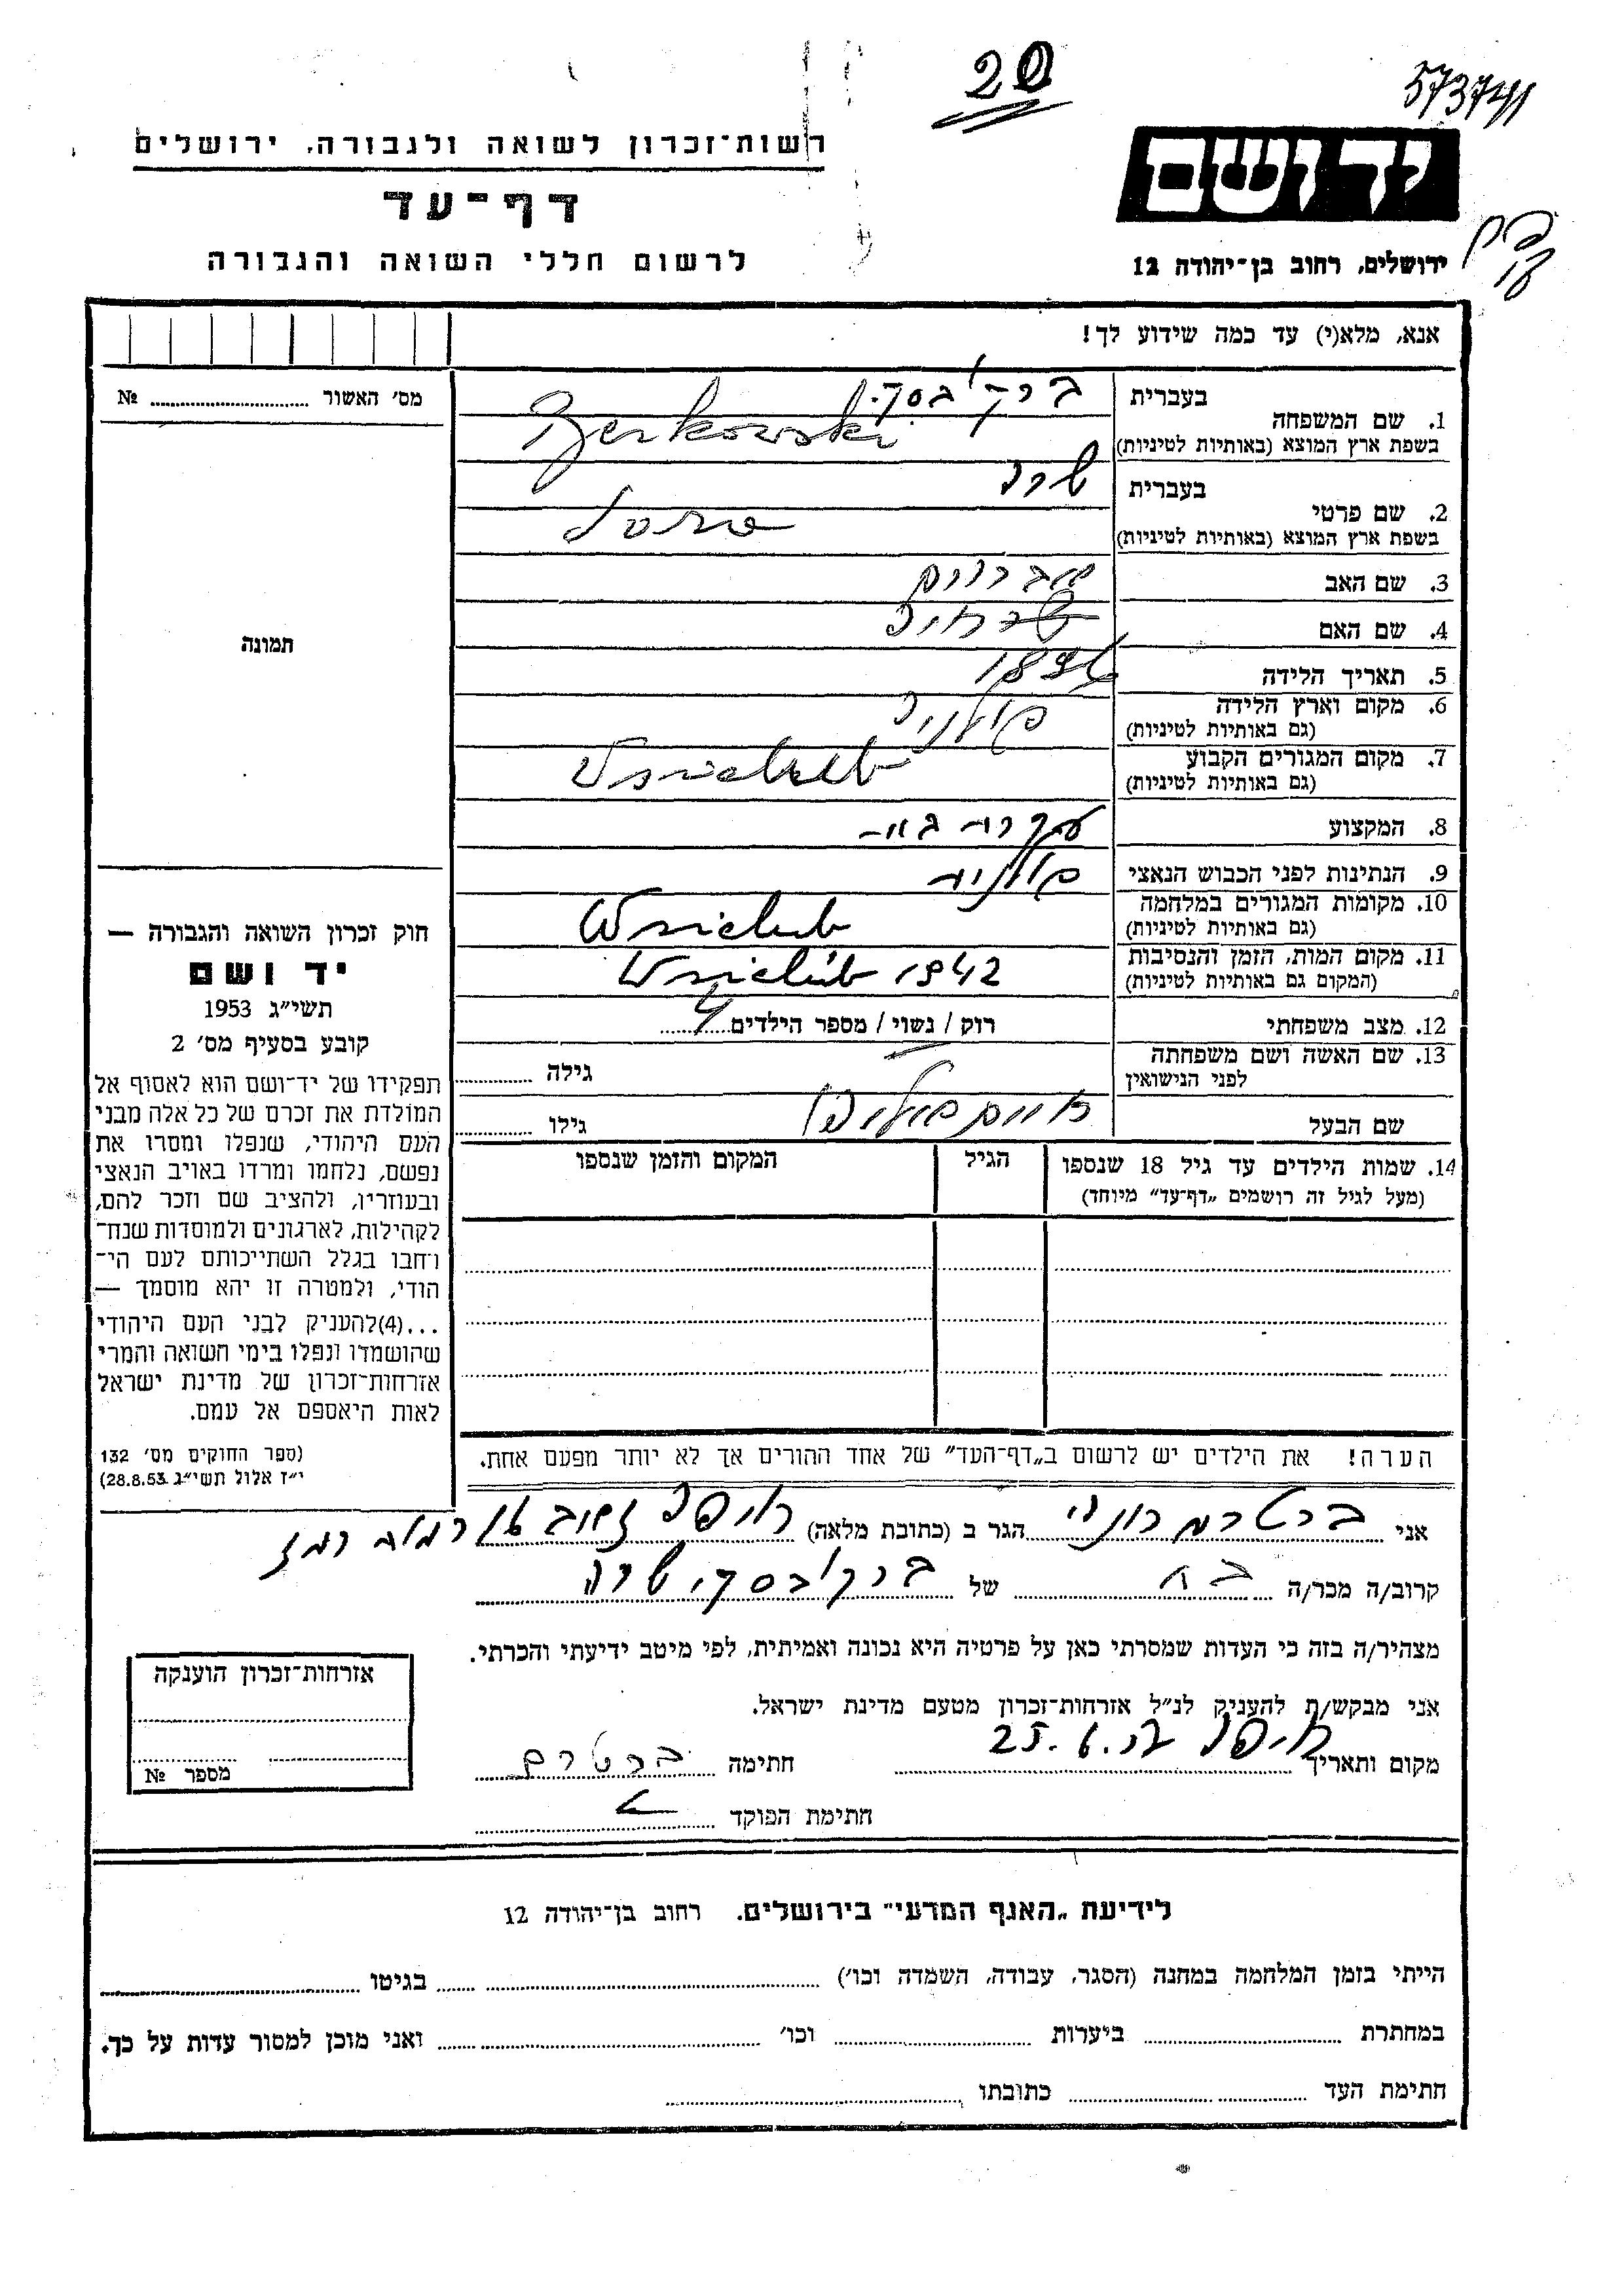 20
573741
יד ושם
ירושלים, רחוב בן־יהודה 12
רשות־זכרון לשואה ולגבורה, ירושלים
דף־עד
לרשום חללי השואה והגבורה
אנא, מלא(י) עד כמה שידוע לך!
מס׳ האשור № 
תמונה
חוק זכרון השואה והגבורה —
יד ושם
תשי״ג 1953
קובע בסעיף מס׳ 2
תפקידו של יד־ושם הוא לאסוף אל
המולדת את זכרם של כל אלה מבני
העם היהודי, שנפלו ומסרו את
נפשם, נלחמו ומרדו באויב הנאצי
ובעוזריו, ולהציב שם וזכר להם,
לקהילות, לארגונים ולמוסדות שנח־
רחבו בגלל השתייכותם לעם הי־
הודי, ולמטרה זו יהא מוסמך —
...(4)להעניק לבני העם היהודי
שהושמדו ונפלו בימי השואה והמרי
אזרחות־זכרון של מדינת ישראל
לאות היאספם אל עמם.
(ספר החוקים מס׳ 132
י״ז אלול תשי״ג 28.8.53)
1. שם המשפחה
בעברית ברקובסקי
בשפת ארץ המוצא (באותיות לטיניות) Berkowski
2. שם פרטי
בעברית שרה
בשפת ארץ המוצא (באותיות לטיניות)
3. שם האב אברהם
4. שם האם
5. תאריך הלידה
6. מקום וארץ הלידה פולניה
(גם באותיות לטיניות)
7. מקום המגורים הקבוע
(גם באותיות לטיניות)
8. המקצוע עקרת בית
9. הנתינות לפני הכבוש הנאצי פולנית
10. מקומות המגורים במלחמה
(גם באותיות לטיניות)
11. מקום המות, הזמן והנסיבות 1942
(המקום גם באותיות לטיניות)
12. מצב משפחתי רוק / נשוי / מספר הילדים 4
13. שם האשה ושם משפחתה
לפני הנישואין גילה
שם הבעל גילו
14. שמות הילדים עד גיל 18 שנספו
(מעל לגיל זה רושמים „דף־עד״ מיוחד)
הגיל
המקום והזמן שנספו
הערה! את הילדים יש לרשום ב„דף־העד״ של אחד ההורים אך לא יותר מפעם אחת.
אני ברטרם רוניה הגר ב (כתובת מלאה) חיפה
קרוב/ה מכר/ה בת של ברקובסקי שרה
מצהיר/ה בזה כי העדות שמסרתי כאן על פרטיה היא נכונה ואמיתית, לפי מיטב ידיעתי והכרתי.
אני מבקש/ת להעניק לנ״ל אזרחות־זכרון מטעם מדינת ישראל.
מקום ותאריך חיפה חתימה ברטרם
חתימת הפוקד
אזרחות־זכרון הוענקה
מספר №
לידיעת „האגף המדעי״ בירושלים. רחוב בן־יהודה 12
הייתי בזמן המלחמה במחנה (הסגר, עבודה, השמדה וכו׳) בגיטו
במחתרת ביערות וכו׳ ואני מוכן למסור עדות על כך.
חתימת העד כתובתו